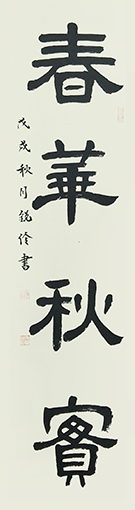 春華秋實
戊戌秋月錦俊書